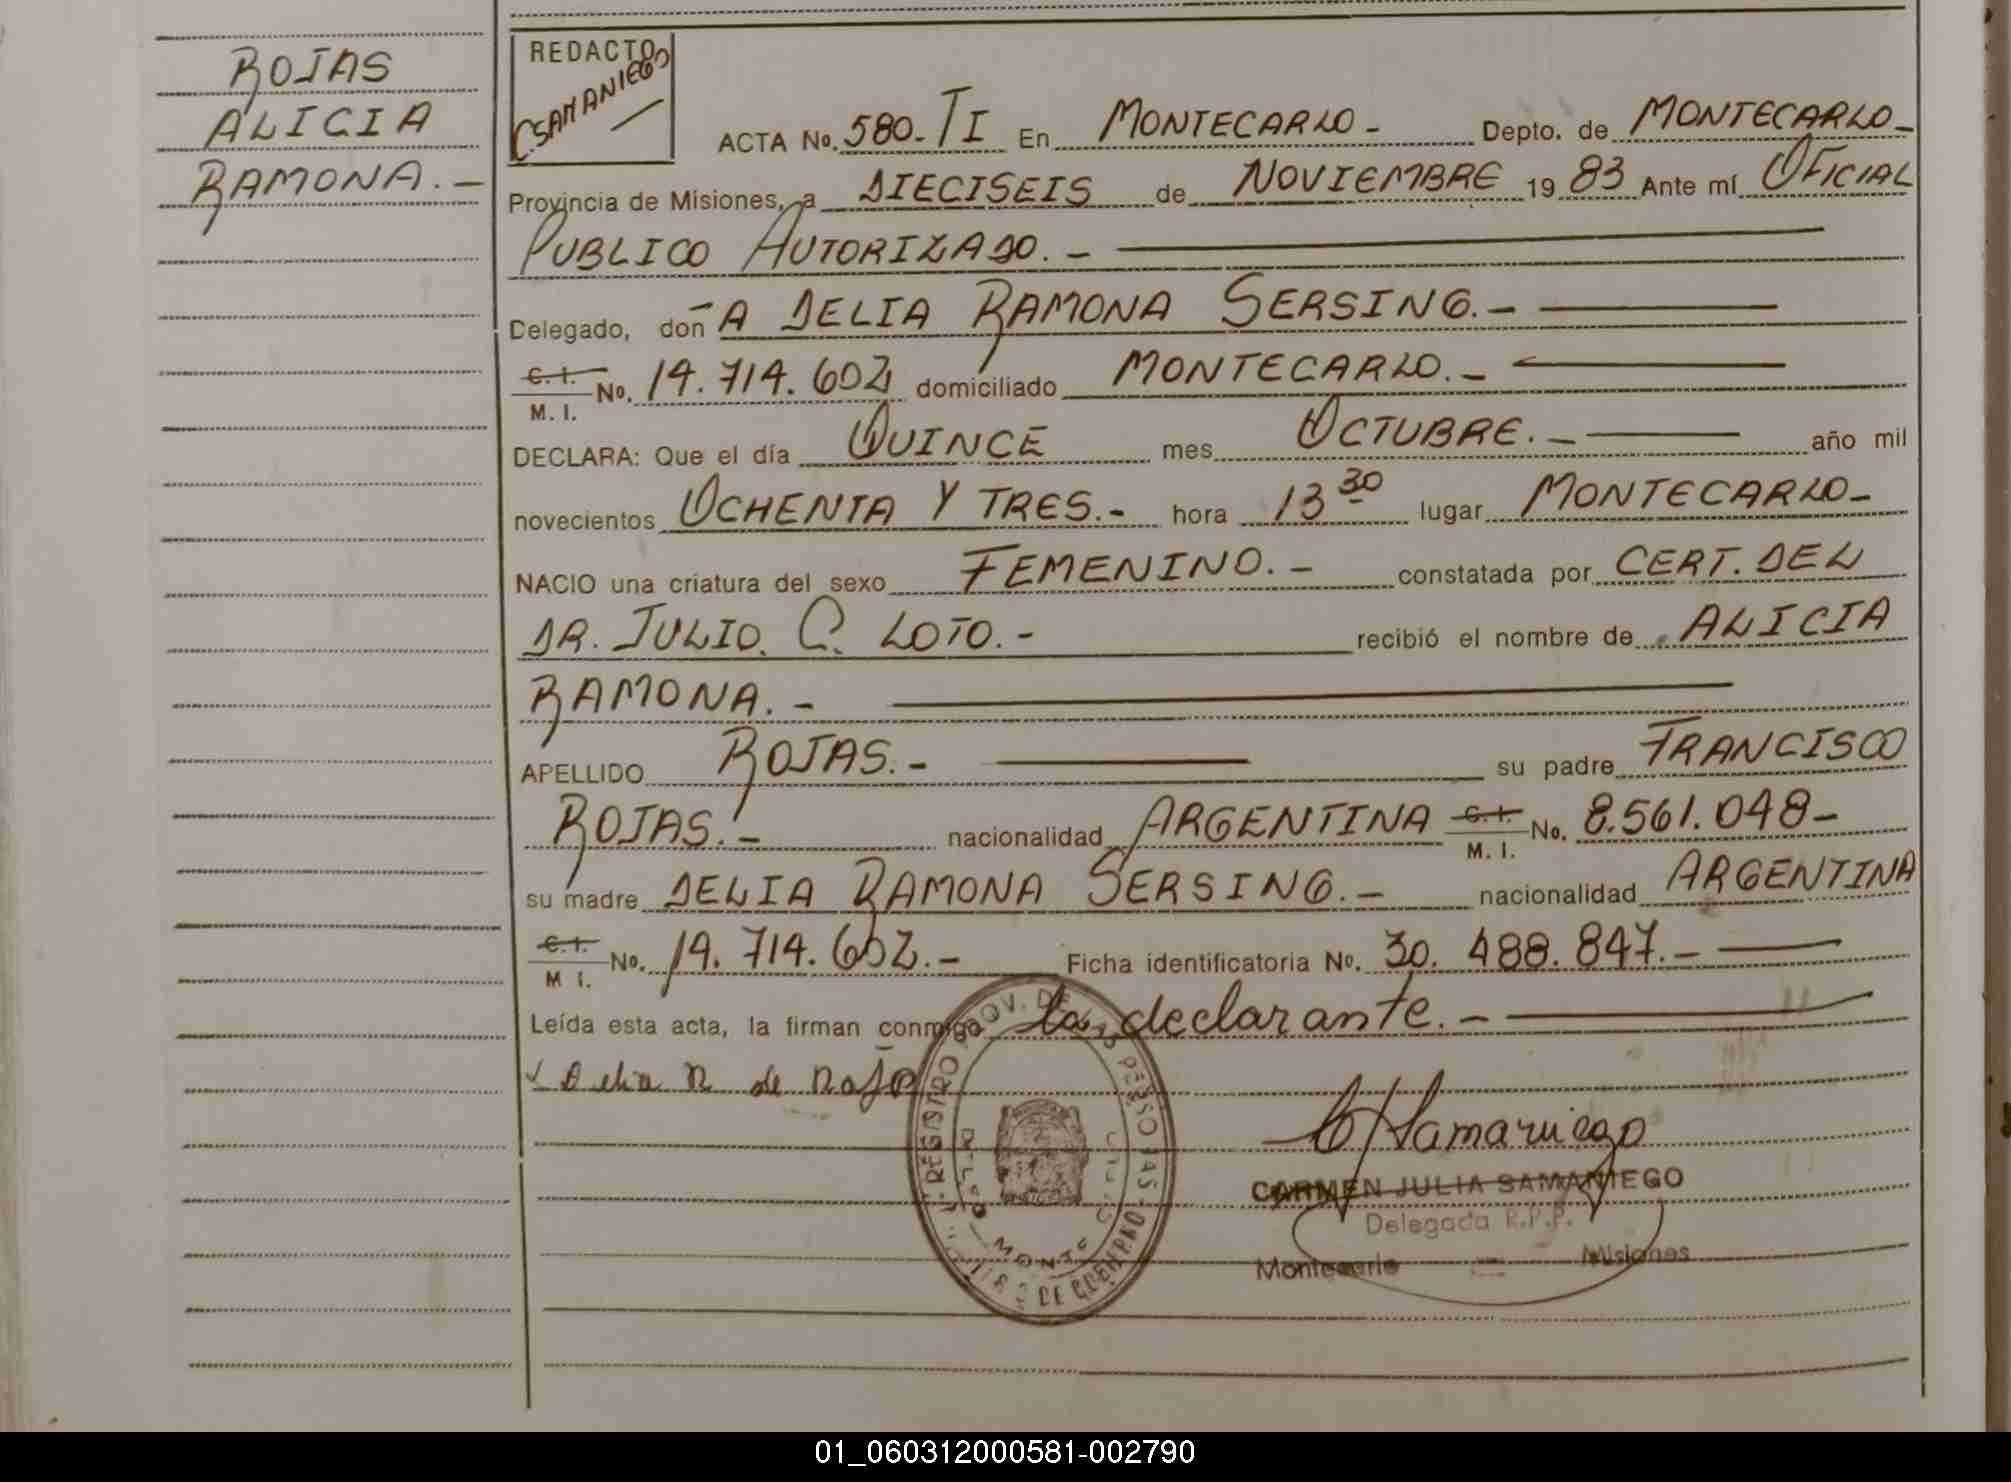 ROJAS
ALICIA
RAMONA.-
REDACTO
CSAMANIEGO
ACTA No. 580-TI En MONTECARLO- Depto. de MONTECARLO-
Provincia de Misiones, a DIECISEIS de NOVIEMBRE 1983 Ante mí OFICIAL
PUBLICO AUTORIZADO.-
Delegado, donA DELIA RAMONA SERSING.-
C. I. No. 14.714.602 domiciliado MONTECARLO.-
M. I.
DECLARA: Que el día QUINCE mes OCTUBRE.- año mil
novecientos OCHENTA Y TRES.- hora 13 30 lugar MONTECARLO-
NACIO una criatura del sexo FEMENINO.- constatada por CERT. DEL
DR. JULIO. C. LOTO.- recibió el nombre de ALICIA
RAMONA.-
APELLIDO ROJAS.- su padre FRANCISCO
ROJAS.- nacionalidad ARGENTINA C. I. No. 8.561.048-
M. I.
su madre DELIA RAMONA SERSING.- nacionalidad ARGENTINA
C. I. No. 14.714.602.- Ficha identificatoria No. 30.488.847.-
M I.
Leída esta acta, la firman conmigo la declarante.-
Delia R de Rojas
CSamaniego
CARMEN JULIA SAMANIEGO
Delegada R.P.P.
Montecarlo - Misiones
REGISTRO PROV. DE LAS PERSONAS
01_060312000581-002790